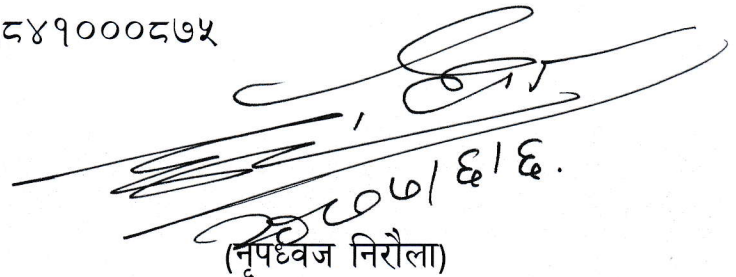 ८४१०००८७५
२०७७/६/६.
(नृपध्वज निरौला)